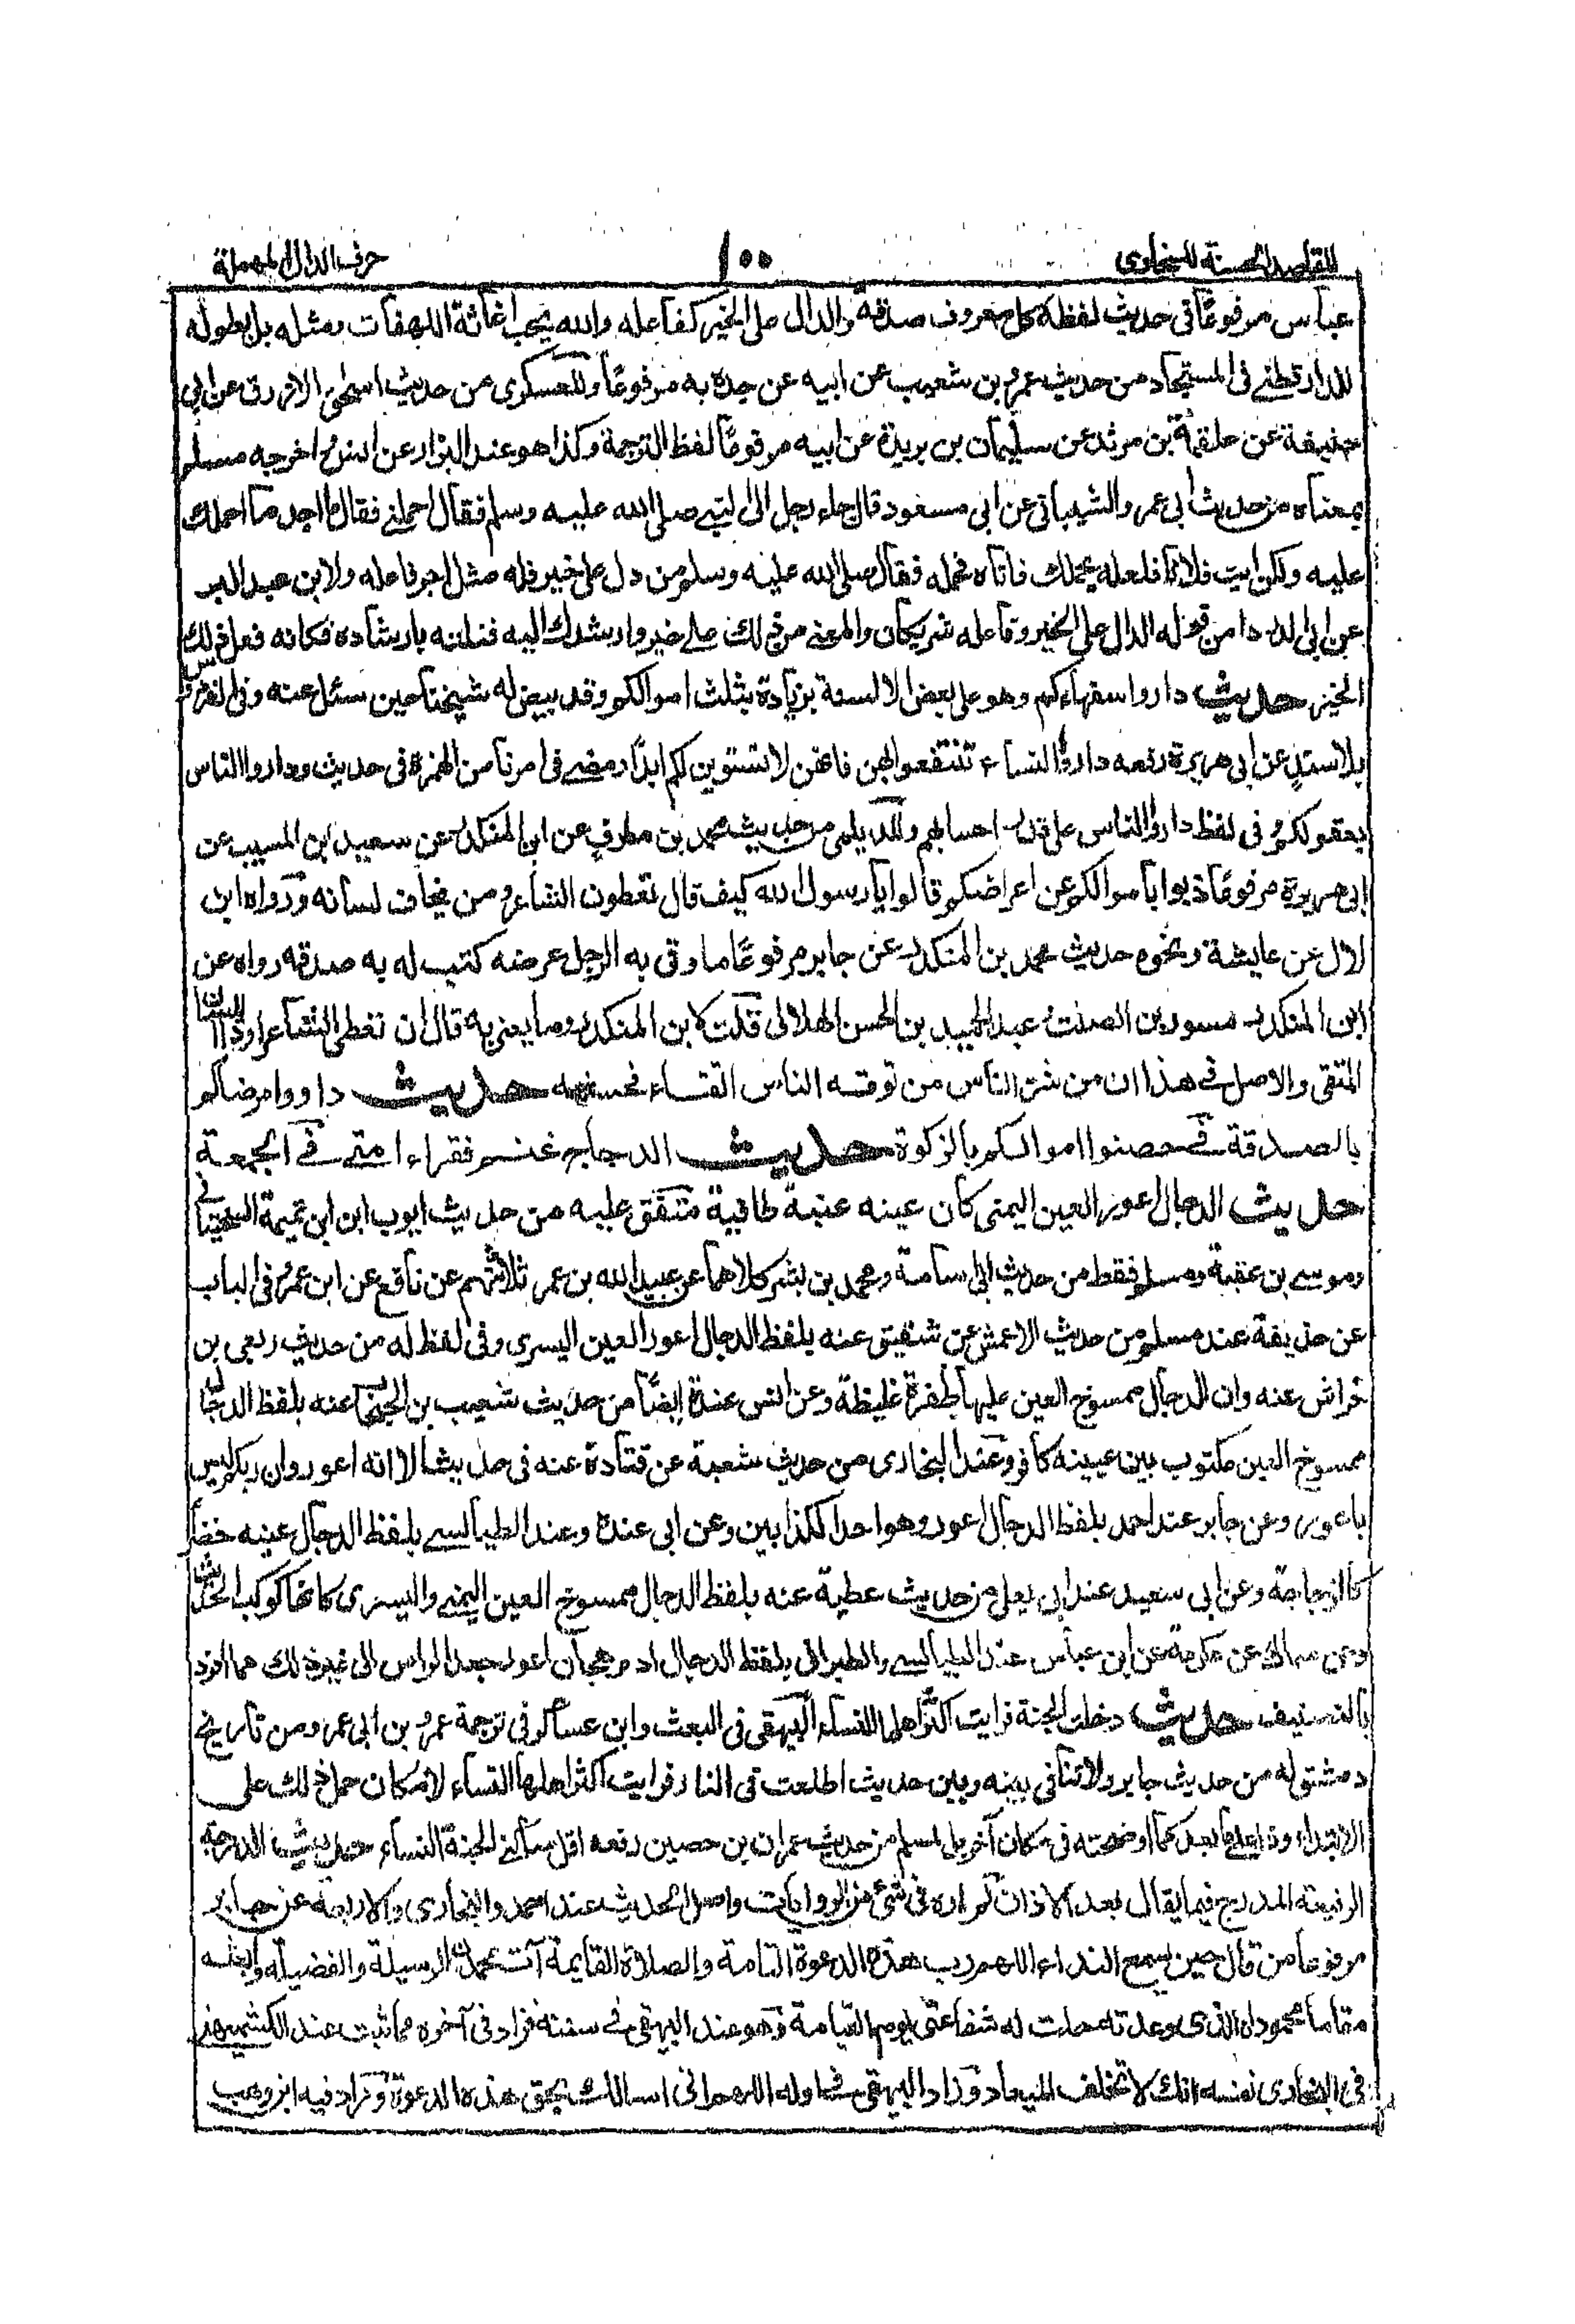 المقاصد الحسنة للسخاوى
١٠٠
حرف الدال المهملة
عباس مرفوعًا فى حديث لفظه كل معروف صدقة والدال على الخير كفاعله والله يحب اغاثة اللهفات ومثله بل بطوله
للدارقطنى فى المستجاد من حديث عمرو بن شعيب عن ابيه عن جده به مرفوعًا وللعسكرى من حديث اسحٰق الازرق عن ابى
حنيفة عن علقمة بن مرثد عن سليمان بن بريدة عن ابيه مرفوعًا لفظ الترجمة وكذا هو عند البزار عن انس اخرجه مسلم
بمعناه من حديث ابى عمرو الشيبانى عن ابى مسعود قال جاء رجل الى النبى صلى الله عليه وسلم فقال احملنى فقال ما اجد ما احملك
عليه ولكن ايت فلانًا فلعله يحملك فاتاه فحمله فقال صلى الله عليه وسلم من دل على خير فله مثل اجر فاعله ولابن عبد البر
عن ابى الدردا من قوله الدال على الخير وفاعله شريكان والمعنى من دلك على خير وارشدك اليه فنلته بارشاده فكانه فعل ذلك
الخير حديث داروا سفهاءكم وهو على بعض الالسنة بزيادة بثلث اموالكم وقد بيض له شيخنا حين سئل عنه وفى الفردوس
بلا سند عن ابى هريرة رفعه داروا النساء تنتفعوا بهن فانهن لا تستوين لكم ابدًا ومضى فى امرنا من الهمزة فى حديث وداروا الناس
بعقولكم وفى لفظ داروا الناس على قدر احسابهم وللديلمى من حديث محمد بن مطرف عن ابن المنكدر عن سعيد ابن المسيب عن
ابى هريرة مرفوعًا ذبوا باموالكم عن اعراضكم قالوا يا رسول الله كيف قال تعطون الشاعر ومن يخاف لسانه ورواه ابن
لال عن عايشة ونحوه حديث محمد بن المنكدر عن جابر مرفوعًا ما وقى به الرجل عرضه كتب له به صدقه رواه عن
ابن المنكدر مسور بن الصلت و عبد الحميد بن الحسن الهلالى قلت لابن المنكدر وما يعنى به قال ان تعطى الشاعر او ذا اللسان
المتقى والاصل فى هذا ان من شر الناس من توقه الناس اتقاء فحشه حديث داووا مرضاكم
بالصدقة فى حصنوا اموالكم بالزكوة حديث الدجاج غنم فقراء امتى فى الجمعة
حديث الدجال اعور العين اليمنى كان عينه عنبة طافية متفق عليه من حديث ايوب ابن ابى تميمة السختيانى
وموسى بن عقبة ومسلم فقط من حديث ابى اسامة ومحمد بن بشر كلاهما عن عبيد الله بن عمر ثلاثتهم عن نافع عن ابن عمر وفى الباب
عن حذيفة عند مسلم من حديث الاعمش عن شقيق عنه بلفظ الدجال اعور العين اليسرى وفى لفظ له من حديث ربعى بن
خراش عنه وان الدجال ممسوخ العين عليها ظفرة غليظة وعن انس عنده ايضًا من حديث شعيب بن الحبحاب عنه بلفظ الدجال
ممسوخ العين مكتوب بين عينيه كافر وعند البخارى من حديث شعبة عن قتادة عنه فى حديث الا انه اعور وان ربكم ليس
باعور وعن جابر عند احمد بلفظ الدجال اعور وهو احد الكذابين وعن ابى عنده وعند الطيالسى بلفظ الدجال عينه خضرا
كالزجاجة وعن ابى سعيد عند ابى يعلى من حديث عطية عنه بلفظ الدجال ممسوخ العين اليمنى واليسرى كانها كوكب الحديث
وعن سماك عن عكرمة عن ابن عباس عند الطيالسى والطبرانى بلفظ الدجال ادم هجان اعور جعد الراس الى غير ذلك مما افرد
بالتصنيف حديث دخلت الجنة فرايت اكثر اهلها النساء البيهقى فى البعث وابن عساكر فى ترجمة عمرو بن ابى عمرو من تاريخ
دمشق له من حديث جابر ولا تنافى بينه وبين حديث اطلعت فى النار فرايت اكثر اهلها النساء لامكان حمل ذلك على
الابتداء وذا على ما بعد كما اوضحته فى مكان آخر بل لمسلم من حديث عمران بن حصين رفعه اقل ساكنى الجنة النساء حديث الدرجة
الرفيعة المدرج فيما يقال بعد الاذان لم اره فى شئ من الروايات واصل الحديث عند احمد والبخارى والاربعة عن جابر
مرفوعا من قال حين يسمع النداء اللهم رب هذه الدعوة التامة والصلاة القايمة آت محمدا الوسيلة والفضيلة وابعثه
مقاما محمودا الذى وعدته حلت له شفاعتى يوم القيامة وهو عند البيهقى فى سننه فزاد فى آخره مما ثبت عند الكشميهنى
فى البخارى نفسه انك لا تخلف الميعاد وزاد البيهقى فى اوله اللهم انى اسالك بحق هذه الدعوة وزاد فيه ابن وهب